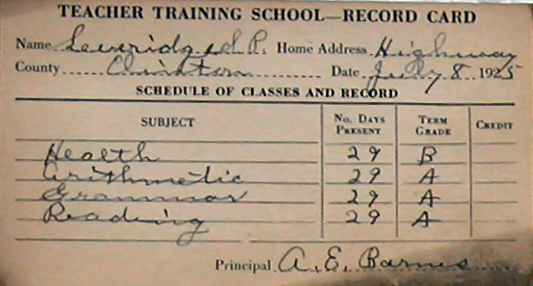 TEACHER TRAINING SCHOOL—RECORD CARD
Name Home Address Highway
County Clinton Date July 8 1925
SCHEDULE OF CLASSES AND RECORD
SUBJECT No. DAYS PRESENT TERM GRADE CREDIT
Health 29 B
Arithmetic 29 A
Grammar 29 A
Reading 29 A
Principal A. E. Barnes